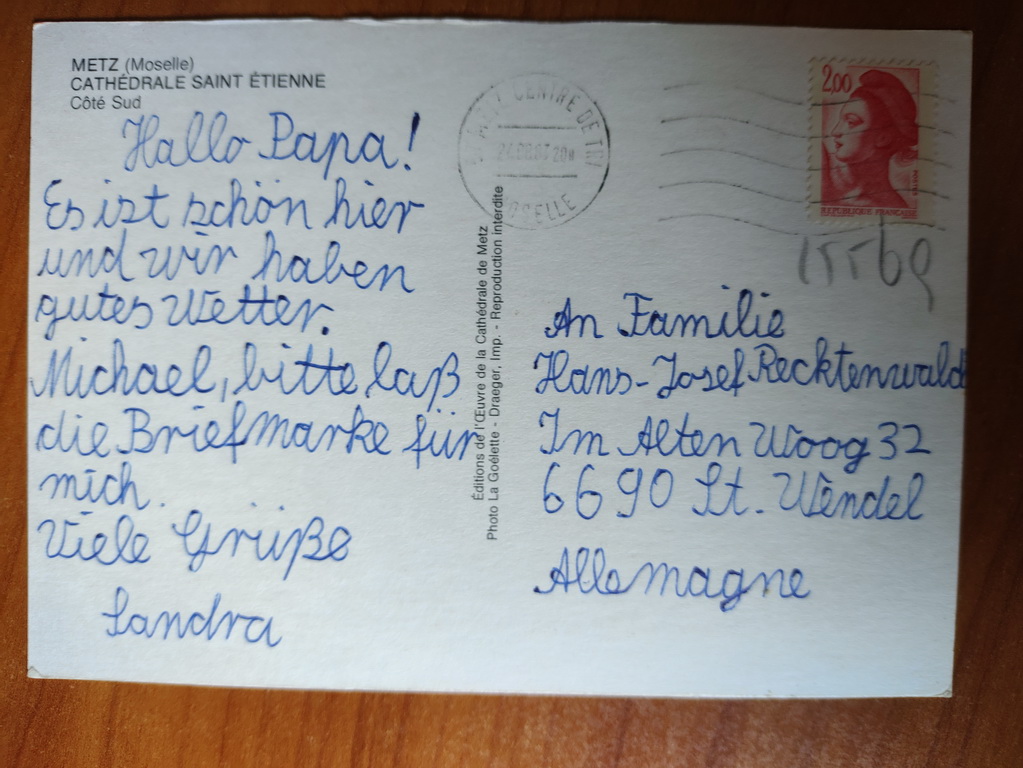 METZ (Moselle)
CATHÉDRALE SAINT ÉTIENNE
Côté Sud
Hallo Papa!
Es ist schön hier
und wir haben
gutes Wetter.
Michael, bitte laß
die Briefmarke für
mich.
Viele Grüße
Sandra
Éditions de l'Œuvre de la Cathédrale de Metz
Photo La Goélette - Draeger, Imp. - Reproduction interdite
METZ CENTRE DE TRI
MOSELLE
2,00
REPUBLIQUE FRANÇAISE
15569
An Familie
Hans-Josef Recktenwald
Im Alten Woog 32
6690 St. Wendel
Allemagne